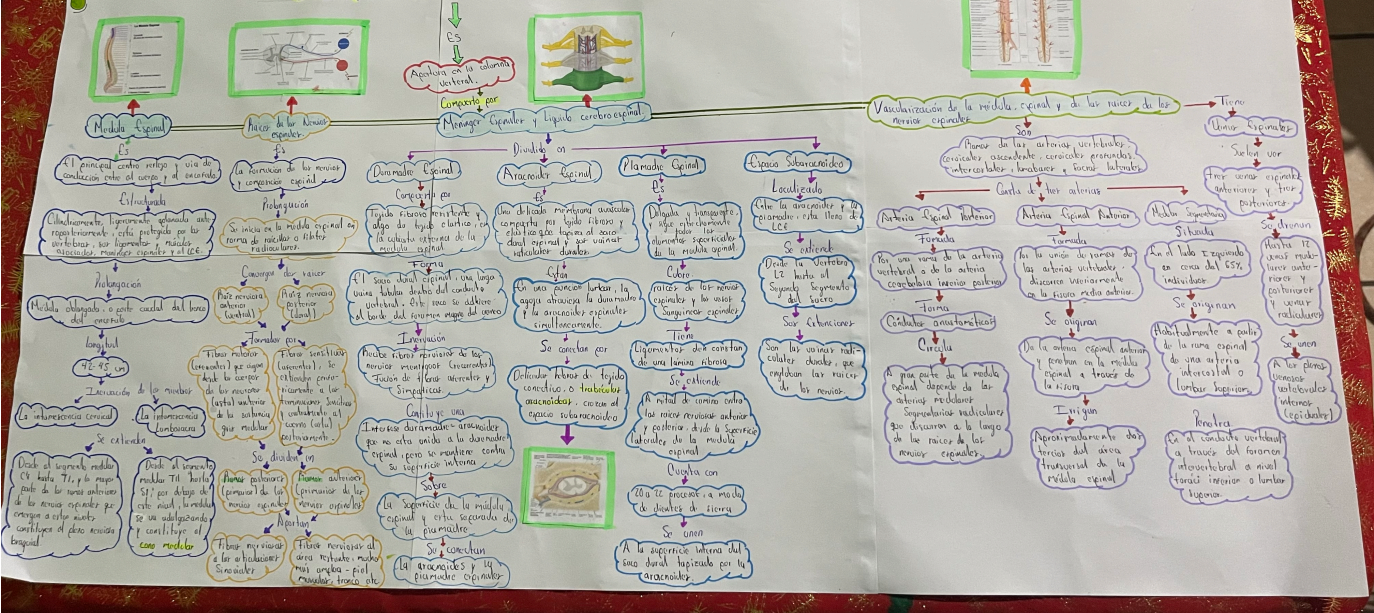 Es
Apertura en la columna
vertebral.
Compuesto por
Medula Espinal
Raices de los Nervios
espinales
Meninges Espinales y Liquido cerebroespinal
Vascularización de la medula espinal y de las raices de los
nervios espinales
Es
El principal centro reflejo y via de
conducción entre el cuerpo y el encefalo
Estructurada
Cilindricamente, ligeramente aplanada ante-
roposteriormente, esta protegida por las
vertebras, sus ligamentos y musculos
asociados, meninges espinales y el LCE.
Prolongación
Medula oblongada, o parte caudal del tronco
del encefalo
longitud
42-45 cm
Inervación de los miembros
La intumescencia cervical
La intumescencia
lumbosacra
Se extienden
Desde el segmento medular
C4 hasta T1, y la mayor
parte de los ramos anteriores
de los nervios espinales que
emergen a este nivel
constituyen el plexo nervioso
braquial.
Desde el segmento
medular T11 hasta
S1, por debajo de
este nivel, la medula
se va adelgazando
y constituye el
cono medular
Es
La formación de los nervios
y composición espinal
Prolongación
Se inicia en la médula espinal en
forma de raicillas o filetes
radiculares.
Convergen dos raices
Raiz nerviosa
anterior
(ventral)
Raiz nerviosa
posterior
(dorsal)
Formados por
Fibras motoras
(eferentes) que siguen
desde los cuerpos
de las neuronas
(asta) anterior
de la sustancia
gris medular
Fibras sensitivas
(aferentes), se
extienden
Se dividen en
Ramos posteriores
(primarios) de los
nervios espinales
Ramos anteriores
(primarios de los
nervios espinales
Aportan
Fibras nerviosas
a las articulaciones
Sinoviales
Fibras nerviosas al
area restante, mucho
mas amplia - piel
muscular, tronco etc
Dividido en
Duramadre Espinal
Compuesta por
Tejido fibroso resistente y
algo de tejido elastico, en
la cubierta externa de la
medula espinal
Forma
El saco dural espinal, una larga
vaina tubular dentro del conducto
vertebral. Este saco se adhiere
al borde del foramen magno del craneo
Inervación
Recibe fibras nerviosas de los
nervios meningeos (recurrentes)
Función de fibras aferentes y
Simpaticas.
Contituye una
Interfase duramadre-aracnoides
que no esta unida a la duramadre
espinal, pero se mantiene contra
su superficie interna
Sobre
La superficie de la médula
espinal y esta separada de
la piamadre
Se conectan
La aracnoides y la
piamadre espinales
Aracnoides Espinal
Es
Una delicada membrana avascular
compuesta por tejido fibroso y
elastico que tapiza el saco
dural espinal y sus vainas
radiculares durales.
En una puncion lumbar, la
aguja atraviesa la duramadre
y la aracnoides espinales
simultaneamente.
Se conectan por
Delicadas hebras de tejido
conectivo, o trabeculas
aracnoideas, cruzan el
espacio subaracnoideo
Piamadre Espinal
Es
Delgada y transparente,
y sigue estrechamente
todos los
elementos superficiales
de la medula espinal.
Cubre
raices de los nervios
espinales y los vasos
Sanguineos espinales
Tiene
Ligamentos den constan
de una lamina fibrosa
Se extiende
A mitad de camino entre
las raices nerviosas anterior
y posterior, desde la superficie
laterales de la medula
espinal
Cuenta con
20 a 22 procesos, a modo
de dientes de sierra
Se unen
A la superficie interna del
saco dural tapizado por la
aracnoides.
Espacio Subaracnoideo
Localizado
Entre la aracnoides y la
piamadre, esta lleno de
LCE
Se extiende
Desde la Vertebra
L2 hasta el
Segundo Segmento
del Sacro
Sus Extenciones
Son las vainas radi-
culares durales, que
engloban las raices
de los nervios.
Tiene
Venas Espinales
Suelen ver
tres venas espinales
anteriores y tres
posteriores.
Se drenan
Hasta 12
venas medu-
lares ante-
riores y
posteriores
y venas
radiculares
Se unen
A los plexos
venosos
vertebrales
internos
(epidurales)
Son
Ramas de las arterias vertebrales,
cervicales ascendente, cervicales profundas,
intercostales, lumbares y sacras laterales
Consta de tres arterias
Arteria Espinal Posterior
Formada
Por una rama de la arteria
vertebral o de la arteria
cerebelosa inferior posterior
Forma
Conductos anastomóticos
Circula
A gran parte de la medula
espinal depende de las
arterias medulares
Segmentarias radiculares
que discurren a lo largo
de las raices de los
nervios espinales.
Arteria Espinal Anterior
Formada
Por la unión de ramas de
las arterias vertebrales,
discurre inferiormente
en la fisura media anterior.
Se originan
De la arteria espinal anterior
y terminan en la medula
espinal a través de
la fisura
Irrigan
Aproximadamente dos
tercios del área
transversal de la
médula espinal
Medular Segmentaria
Situada
En el lado Izquierdo
en cerca del 65%
individuos
Se originan
Habitualmente a partir
de la rama espinal
de una arteria
intercostal o
lumbar Superior.
Penetra
En el conducto vertebral
a través del foramen
intervertebral a nivel
toráci inferior o lumbar
Superior.